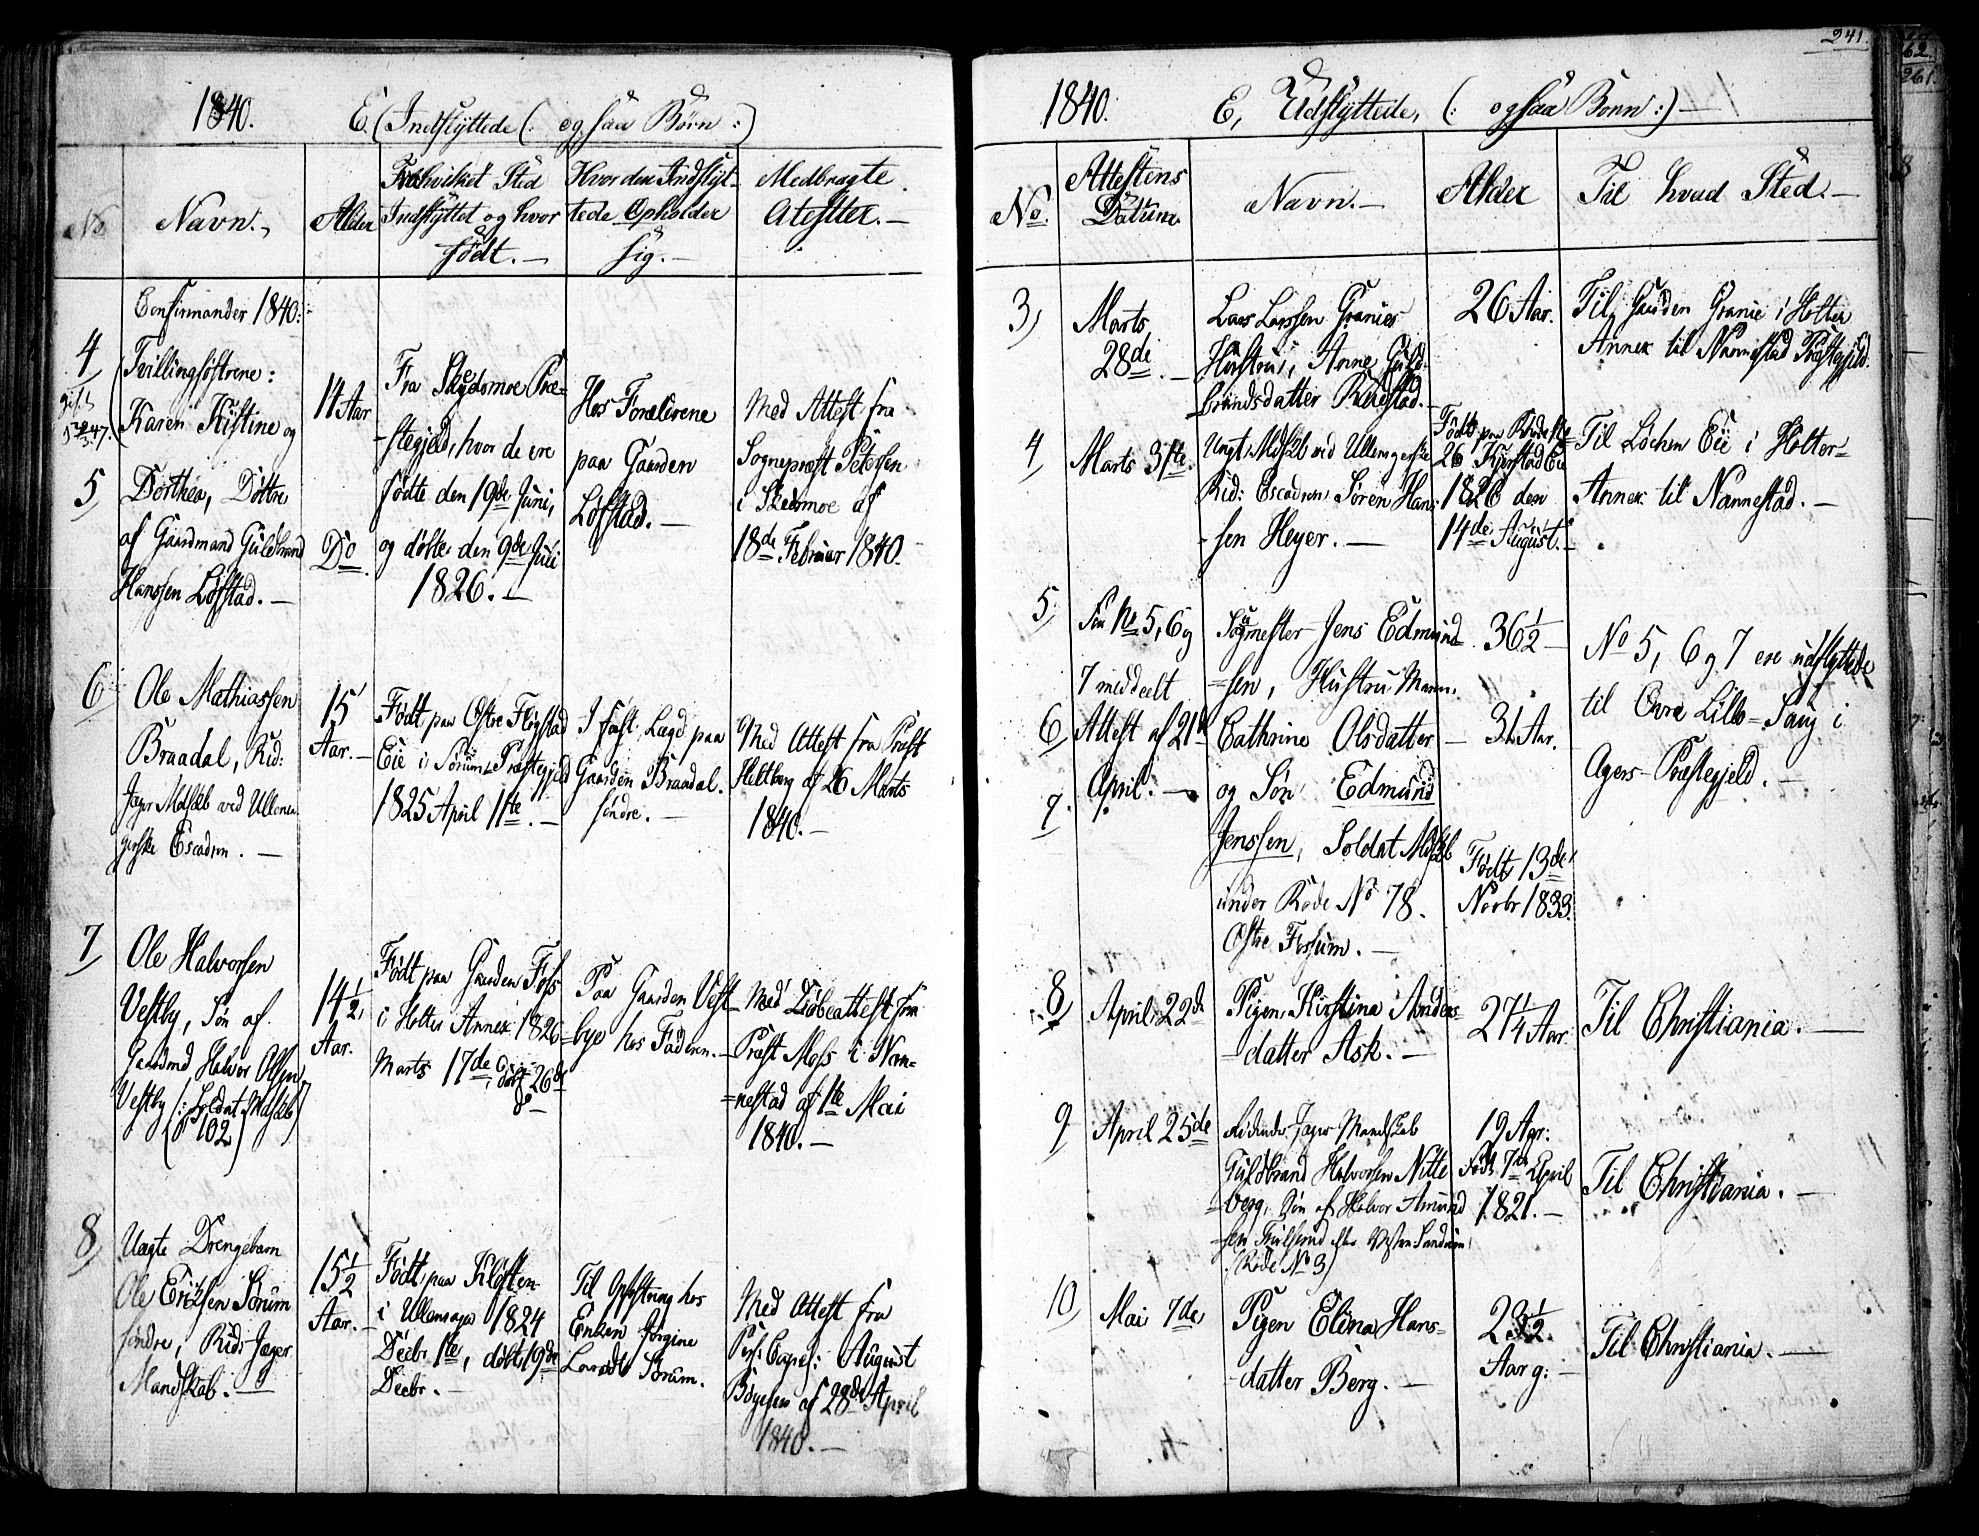 1840.
E. (Indflyttede (: ogsaa Børn :)
No
Navn.
Alder
Fra hvilket Sted
Indflyttet og hvor
født. —
Hvor den Indflyt-
tede Opholder
sig. —
Medbragte
Atester. —
Confirmander 1840:
4
Tvillingsøstrene:
Karen Kistine og
14 Aar
5
Dorthea, Døttre
af Gaardmand Guldbrand
Hanssen Løfstad. —
Do
Fra Skedsmoe Præ-
stegjeld, hvor de ere
fødte den 19de Juni,
og døbte den 9de Juli
1826. —
Hos Forældrene
paa Gaarden
Løfstad. —
Med Attest fra
Sognepræst Petersen
i Skedsmoe af
18de Februar 1840.
6
Ole Mathiassen
Braadal, Rid:
Jæger Mdskb ved Ullensa-
gerske Escadron. —
15
Aar. —
Født paa Østre
Eie i Sørum Præstegjeld
1825 April 11te. —
I fast Lægd paa
Gaarden Braadal.
søndre. —
Med Attest fra Præst
Heltberg af 26 Marts
1840. —
7
Ole Halvorsen
Vestby, Søn af
Gaardmd Halvor Olsen
Vestby (: Soldat Mdskb
102)
14 1/2
Aar.
Født paa Gaarden Foss
i Holter Annex 1826
Marts 17de, døbt 26de
do —
Paa Gaarden Vest-
bye hos Faderen. —
Med Døbeattest fra
Præst Moss i Nan-
nestad af 1te Mai
1840. —
8
Uægte Drengebarn
Ole Eriksen Sørum
søndre, Rid: Jæger
Mandskab. —
15 1/2
Aar. —
Født paa Kløften
i Ullensager 1824
Decbr 1te, døbt 19de
Decbr. —
Til Opfostring hos
Enken Jørgine
Sørum.
Med Attest fra
Pers: Capel: August
Bøyesen af 28de April
1840. —
241.
1840.
E, Udflyttede, (: ogsaa Børn :) —
No.
Attestens
Datum.
Navn. —
Alder
Til hvad Sted. —
3
Marts
28de. —
Lars Larssen Granies
Hustru, Anne Guld-
brandsdatter
26 Aar.
Til Gaarden Granie i Holter
Annex til Nannestad Præstegjeld.
4
Marts 31te.
Ungt Mdskb ved Ullensagerske
Rid: Escadron, Søren Han-
sen Heyer. —
1826 den
14de August. —
Til Løchen Eie i Holter
Annex til Nannestad. —
5
For No 5, 6 og
7 meddeelt
Sagmester Jens Edmund-
sen, Hustru Maren
36 1/2
No 5, 6 og 7 ere udflyttede
til Øvre Lillo-Saug i
Agers Præstegjeld. —
6
Attest af 21de
April. —
Cathrine Olsdatter
31 Aar.
7
og Søn Edmund
Jenssen, Soldat Mdskb
under Rode No 78.
Østre Fossum. —
Født 13de
Novbr 1833.
8
April 22de
Pigen Kirstina Anders-
datter Ask. —
27 1/4 Aar.
Til Christiania. —
9
April 25de
Ridende Jæger Mandskab
Guldbrand Halvorsen Nitte-
berg, Søn af Halvor Amund-
sen
(Rode No 3)
19 Aar:
født 7de April
1821. —
Til Christiania. —
10
Mai 7de
Pigen Elina Hans-
datter Berg. —
23 1/2.
Aar g: —
Til Christiania. —